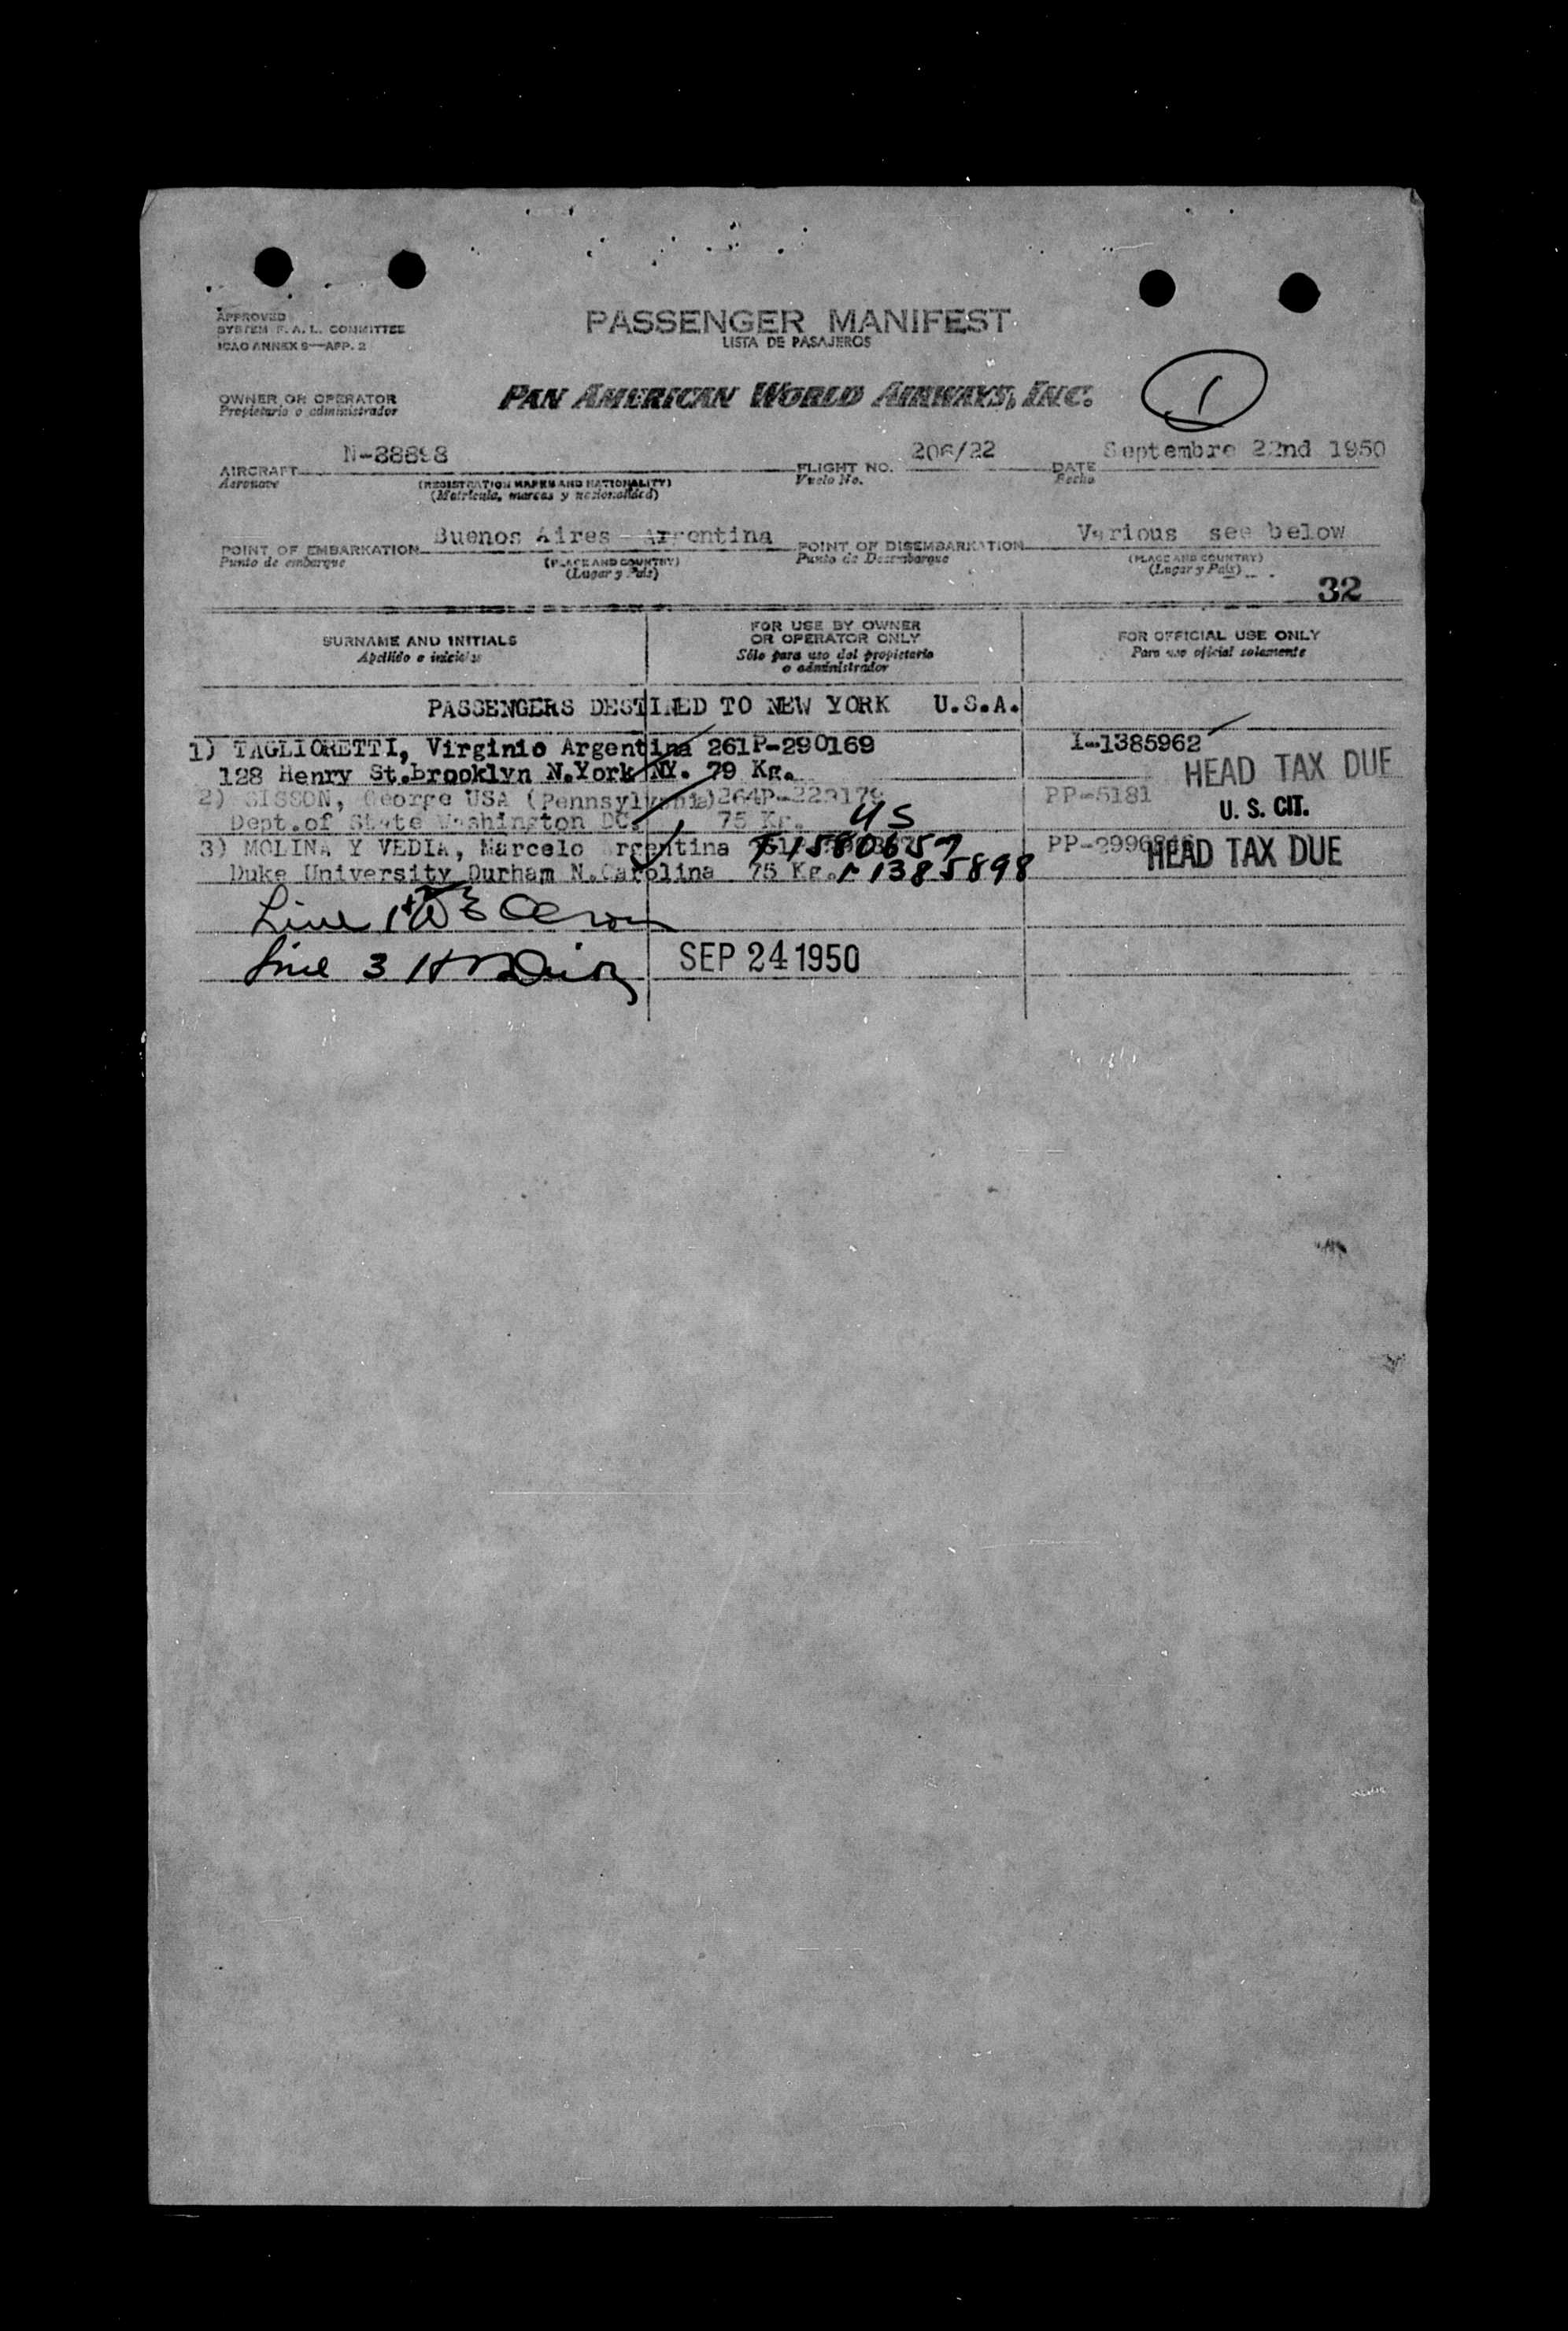 APPROVED
SYSTEM F. A. L. COMMITTEE
ICAO ANNEX 9—APP. 2
PASSENGER MANIFEST
LISTA DE PASAJEROS
OWNER OR OPERATOR
Propietario o administrador
PAN AMERICAN WORLD AIRWAYS, INC.
1
AIRCRAFT
Aeronave
(REGISTRATION MARKS AND NATIONALITY)
(Matrícula, marcas y nacionalidad)
FLIGHT NO. 206/22
Vuelo No.
DATE Septembre 22nd 1950
Fecha
POINT OF EMBARKATION Buenos Aires - Argentina
Punto de embarque
(PLACE AND COUNTRY)
(Lugar y País)
POINT OF DISEMBARKATION Various see below
Punto de Desembarque
(PLACE AND COUNTRY)
(Lugar y País)
32
SURNAME AND INITIALS
Apellido e iniciales
FOR USE BY OWNER
OR OPERATOR ONLY
Sólo para uso del propietario
o administrador
FOR OFFICIAL USE ONLY
Para uso oficial solamente
PASSENGERS DESTINED TO NEW YORK U.S.A.
1) TAGLIORETTI, Virginio Argentina 261P-290169 I-1385962
128 Henry St.Brooklyn N.York NY. 79 Kg. HEAD TAX DUE
2) SISSON, George USA (Pennsylvania) PP-5181
Dept.of State Washington DC. 75 Kg. US U. S. CIT.
3) MOLINA Y VEDIA, Marcelo Argentina 1580657 HEAD TAX DUE
Duke University Durham N.Carolina 75 Kg. 1385898
Line 1
Line 3
SEP 24 1950